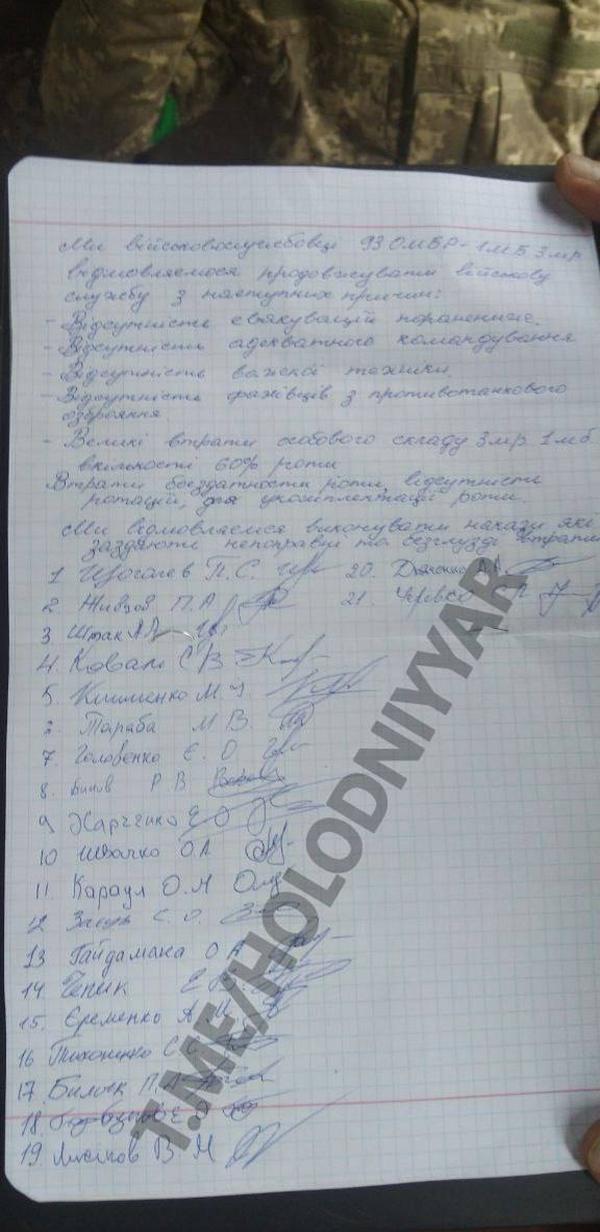 Ми військовослужбовці 93 ОМБР-1МБ 3мр
відмовляємося продовжувати військову
службу з наступних причин:
- Відсутність евакуації поранених.
- Відсутність адекватного командування
- Відсутність важкої техніки.
- Відсутність фахівців з противотанкового
озброяння
- Великі втрати особового складу 3мр 1мб
вкількості 60% роти
Втрати боєздатности роти, відсутність
ротації, для укомплектації роти.
Ми відмовляємися виконувати накази які
заздають непоправні та безглузді втрати
1 П.С. 20. Дяченко А.А.
2 Живцов П.А 21.
3 Штак
4. Коваль С В
5. Клименко М.
Тараба М В.
7. Головенко Є. О
8. Р В
9 Харченко Е О
10 Швачко О.А
11. Караул О.М
12 С. О.
13 Гайдамака О А
14. Чепик Е В.
15. Єременко А М
16 Тихоненко С
17. П.А
18. Е О
19. В М
T.ME/HOLODNIYYAR